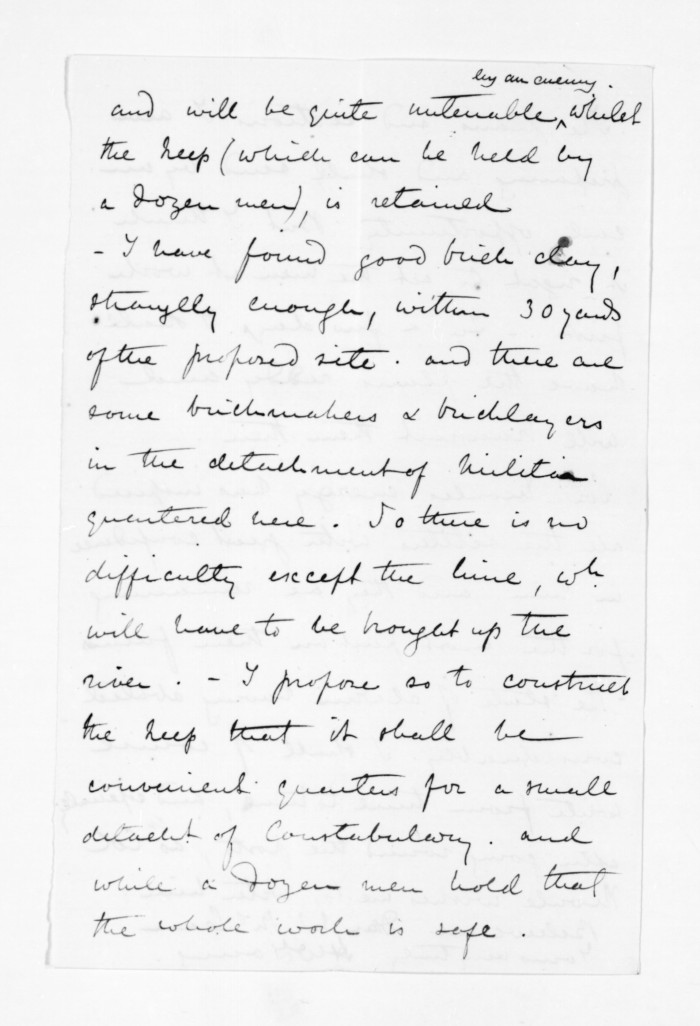 by an enemy.
and will be quite untenable, ^ whilst
the keep (which can be held by
a dozen men), is retained
- I have found good brick clay,
strangely enough, within 30 yards
of the proposed site. and there are
some brickmakers & bricklayers
in the detachment of Militia
quartered here. So there is no
difficulty except the lime, wh.
will have to be brought up the
river. - I propose so to construct
the keep that it shall be
convenient quarters for a small
detacht of Constabulary. and
while a dozen men hold that
the whole work is safe.